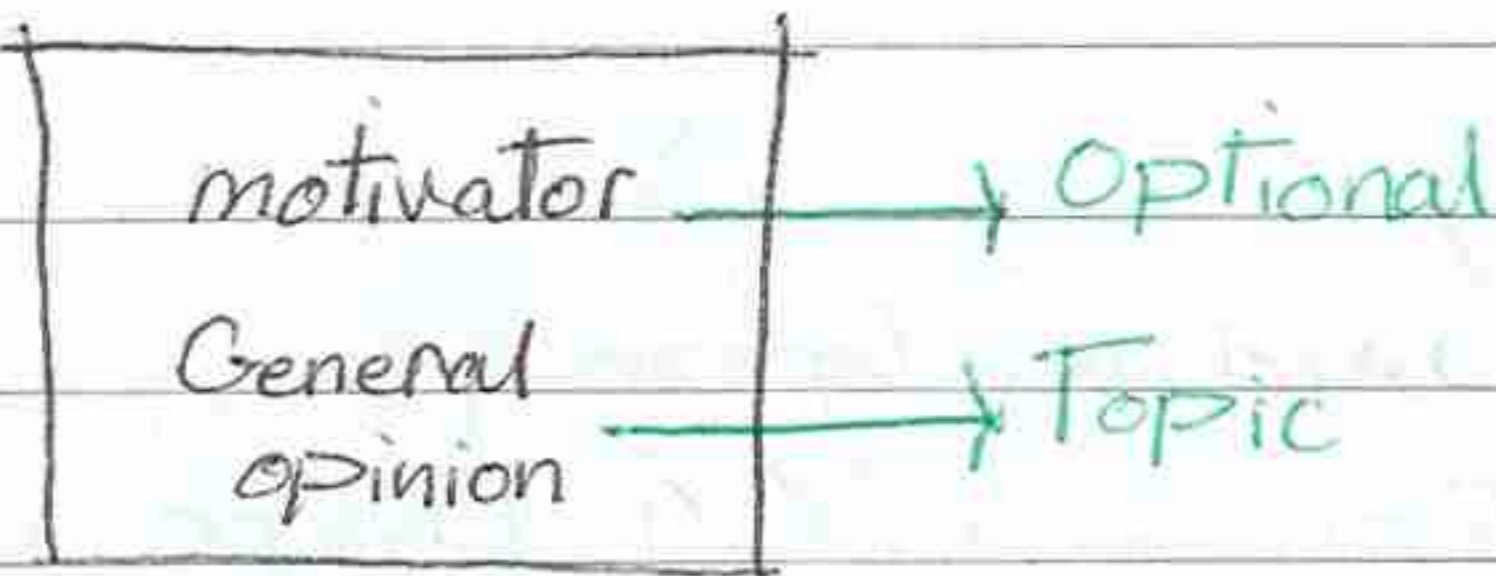 motivator → Optional
General
opinion → Topic